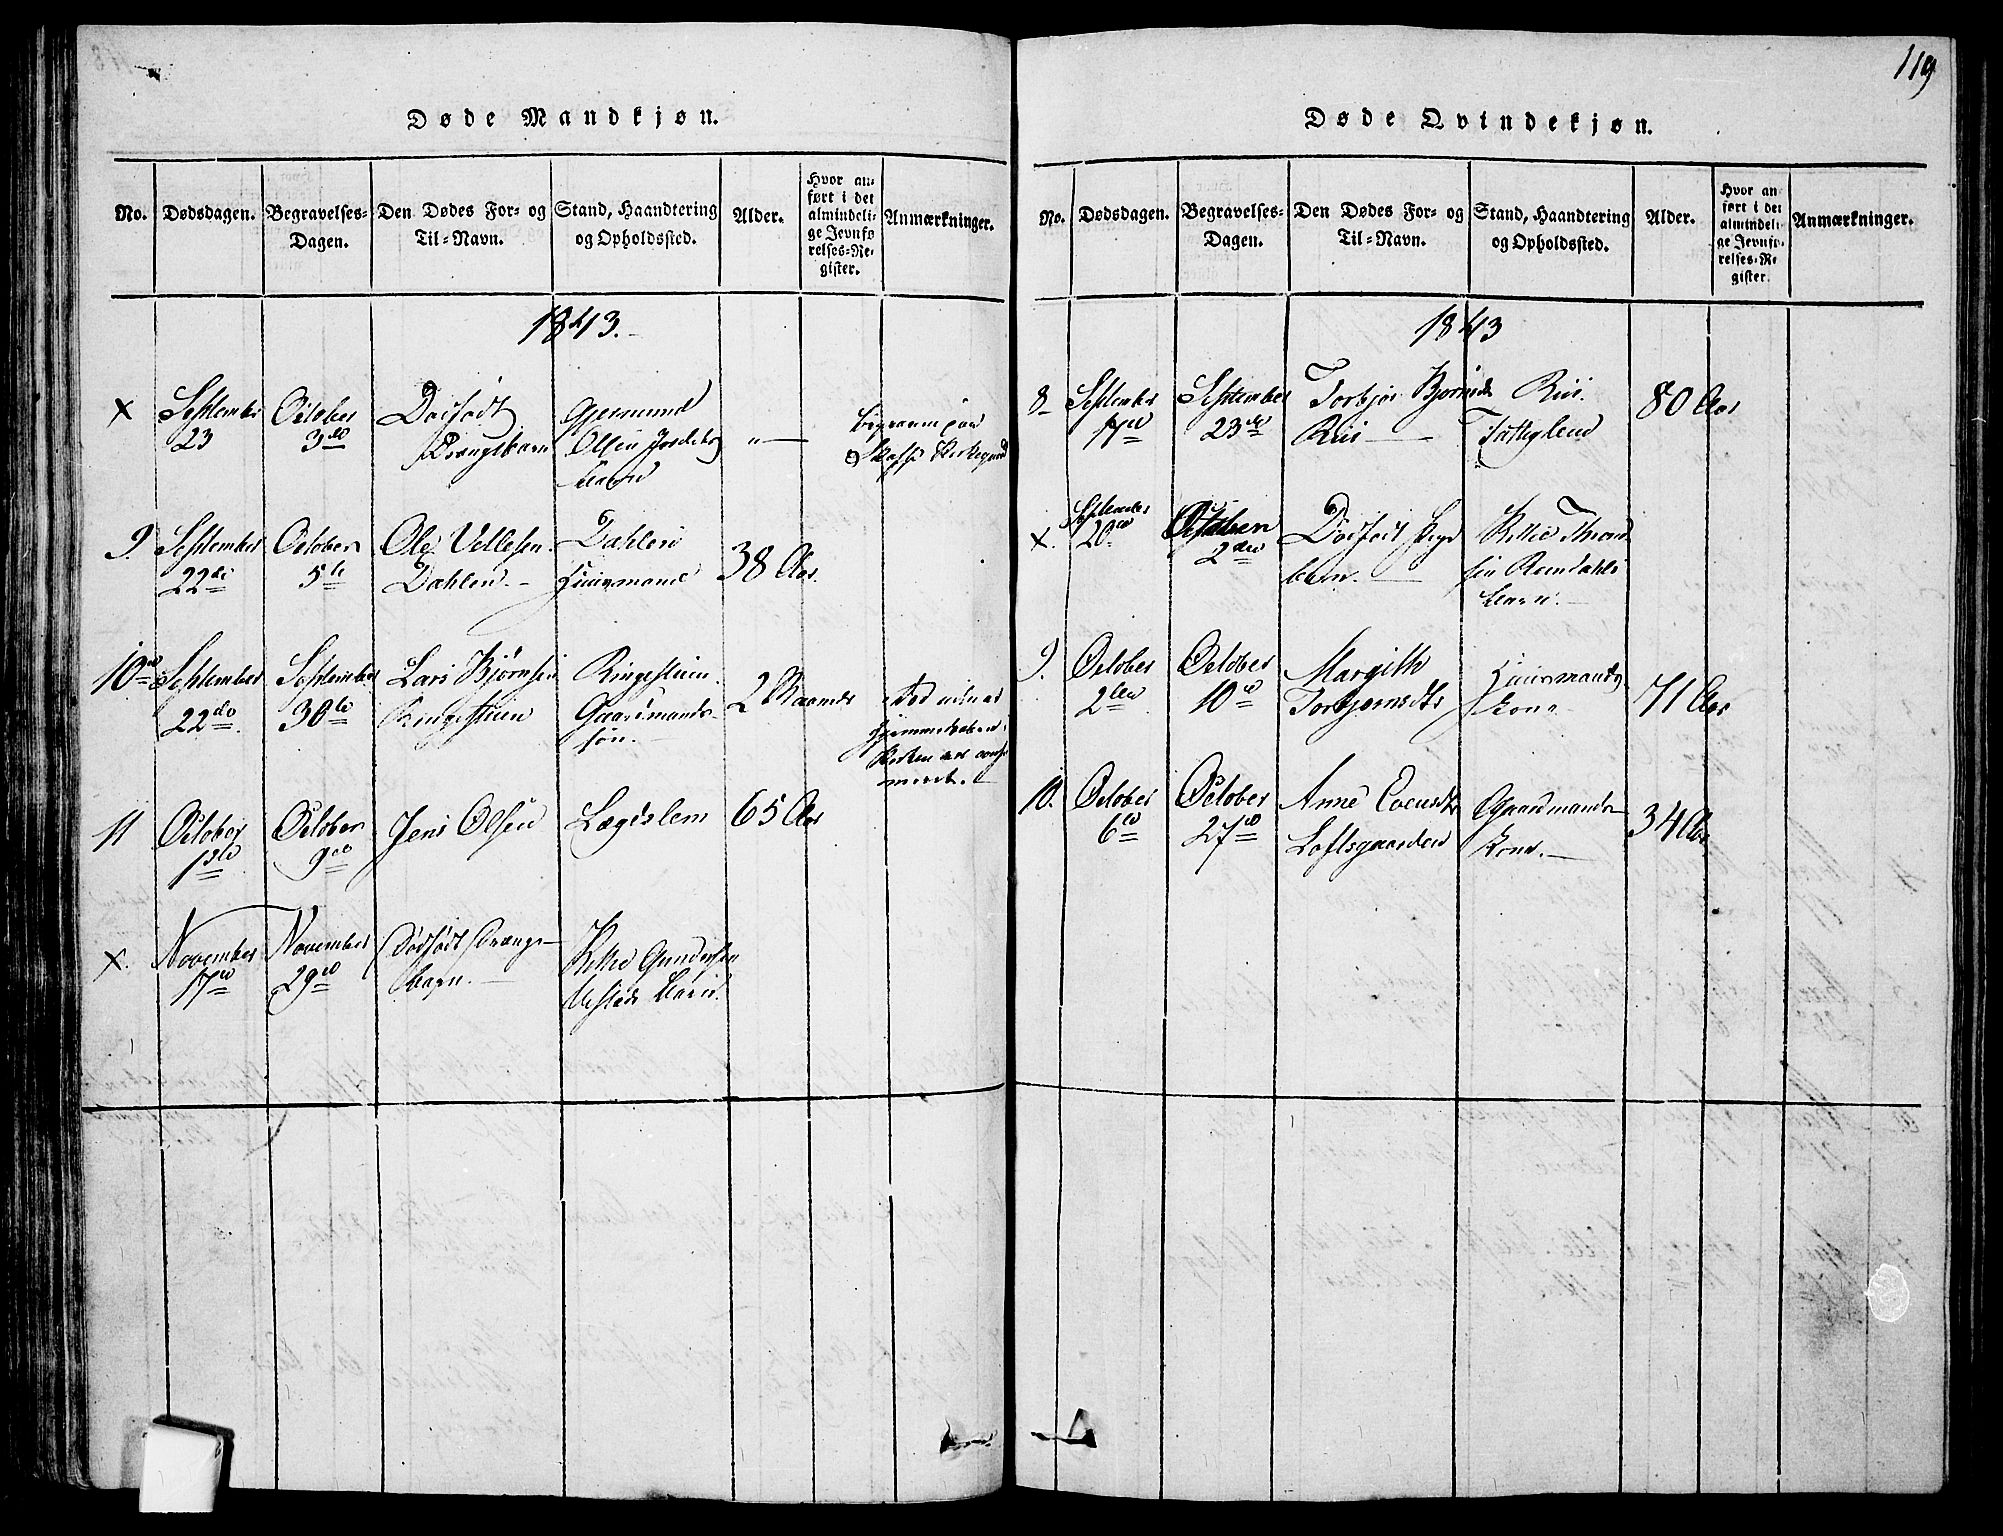 119
Døde Mandkjøn.
No. Dødsdagen. Begravelses-Dagen. Den Dødes For- og Til-Navn. Stand, Haandtering og Opholdssted. Alder. Hvor anført i det almindelige Jevnførelses-Register. Anmærkninger.
1843.
X September 23 October 3die Dødfødt Drængebarn Gjermund Olsen Barn " —
Begraven paa Kirkegaard
9. September 22de October 5te Ole Vellesen Dahlen. - Dahlen Huusmand 38 Aar.
10 September 22de. September 30te Lars Bjørnsen Ringesteen Gaardmands- søn. - 2 Maaned
Kirken
11 October 1ste October 9de Jens Olsen Lægdslem 65 Aar
X. November 17de November 29de Dødfødt Drænge- barn. — Kittil Gundersen Barn.
Døde Qvindekjøn.
No. Dødsdagen. Begravelses-Dagen. Den Dødes For- og Til-Navn. Stand, Haandtering og Opholdssted. Alder. Hvor anført i det almindelige Jevnførelses-Register. Anmærkninger.
1843
8 September 17de September 23de Torbjør Bjørnsdr Rui — Rui. Fattiglem 80 Aar
X. September 20de October 2den Dødfødt Pige barn. — Kittil Barn. —
9. October 2den October 10de Margith Torbjørnsdtr Huusmands Kone 71 Aar
10. October 6te October 27de Anne Evensdtr Loftsgaarden Gaardmands- Kone. — 34 Aar